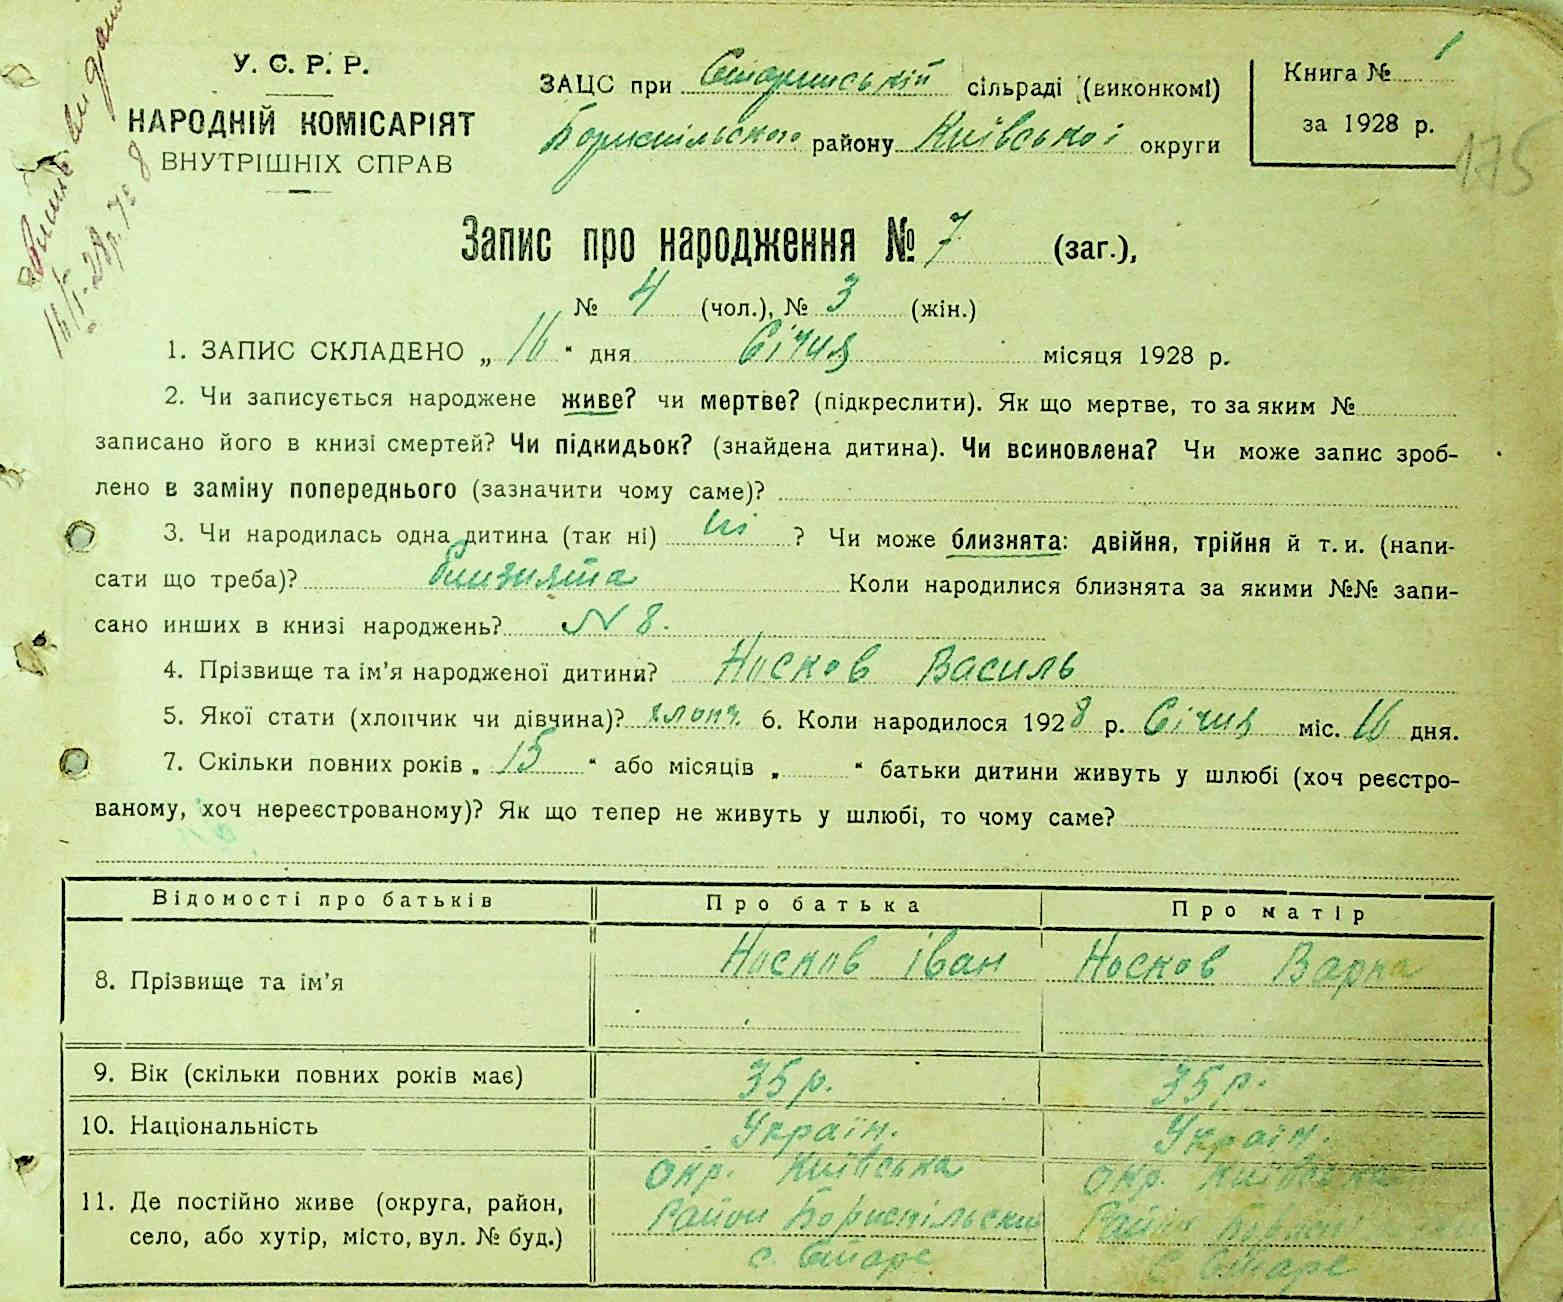 У. С. Р. Р.
НАРОДНІЙ КОМІСАРІЯТ
ВНУТРІШНІХ СПРАВ
ЗАЦС при Старинській сільраді (виконкомі)
Бориспільского району Київської округи
Книга № 1
за 1928 р.
175
Запис про народження № 7 (заг.),
№ 4 (чол.), № 3 (жін.)
1. ЗАПИС СКЛАДЕНО „ 16 “ дня Січня місяця 1928 р.
2. Чи записується народжене живе? чи мертве? (підкреслити). Як що мертве, то за яким №
записано його в книзі смертей? Чи підкидьок? (знайдена дитина). Чи всиновлена? Чи може запис зроб-
лено в заміну попереднього (зазначити чому саме)?
3. Чи народилась одна дитина (так ні) ні ? Чи може близнята: двійня, трійня й т. и. (напи-
сати що треба)? близнята Коли народилися близнята за якими №№ запи-
сано инших в книзі народжень? N 8.
4. Прізвище та ім’я народженої дитини? Носков Василь
5. Якої стати (хлопчик чи дівчина)? хлопч. 6. Коли народилося 1928 р. Січня міс. 16 дня.
7. Скільки повних років „ 15 “ або місяців „ “ батьки дитини живуть у шлюбі (хоч реєстро-
ваному, хоч нереєстрованому)? Як що тепер не живуть у шлюбі, то чому саме?
Відомості про батьків Про батька Про матір
8. Прізвище та ім’я Носков Іван Носков Варка
9. Вік (скільки повних років має) 35 р. 35 р.
10. Національність Україн. Україн.
11. Де постійно живе (округа, район,
село, або хутір, місто, вул. № буд.)
Окр. Київська
Район Бориспільский
с. Старе
Окр. Київська
Район
с Старе